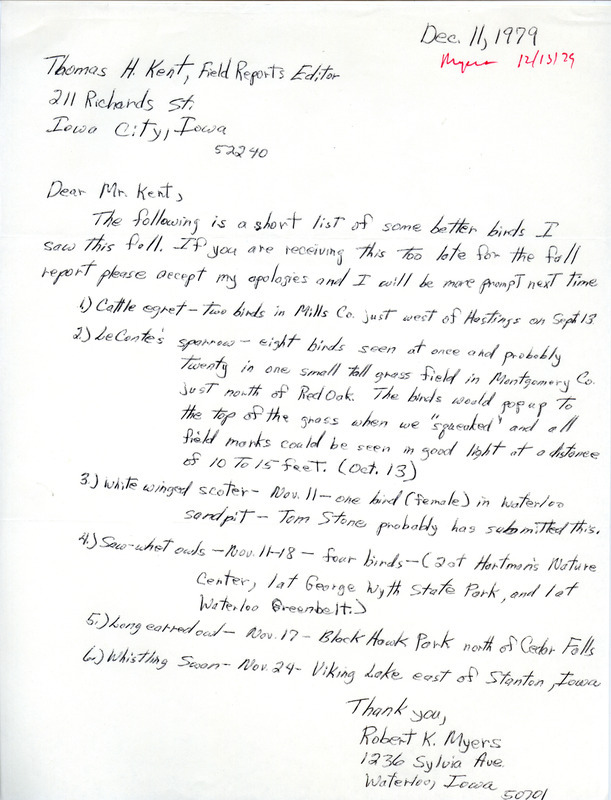 Dec. 11, 1979
Myers 12/13/79
Thomas H. Kent, Field Reports Editor
211 Richards St.
Iowa City, Iowa
52240
Dear Mr. Kent,
The following is a short list of some better birds I
saw this fall. If you are receiving this too late for the fall
report please accept my apologies and I will be more prompt next time
1.) Cattle egret - two birds in Mills Co. just west of Hastings on Sept 13
2.) LeConte's sparrow - eight birds seen at once and probably
twenty in one small tall grass field in Montgomery Co.
just north of Red Oak. The birds would pop up to
the top of the grass when we "squeaked" and all
field marks could be seen in good light at a distance
of 10 to 15 feet. (Oct. 13)
3.) White winged scoter - Nov. 11 - one bird (female) in Waterloo
sandpit - Tom Stone probably has submitted this.
4.) Saw-whet owls - Nov. 11-18 - four birds - (2 at Hartman's Nature
Center, 1 at George Wyth State Park, and 1 at
Waterloo Greenbelt.)
5.) Long earred owl - Nov. 17 - Black Hawk Park north of Cedar Falls
6.) Whistling Swan - Nov. 24 - Viking Lake east of Stanton, Iowa
Thank you,
Robert K. Myers
1236 Sylvia Ave.
Waterloo, Iowa
50701